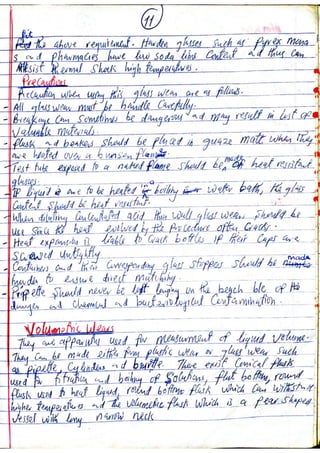 11
the above requirement. Harden glasses such as Pyrex mona
s and pharmacies have low soda lime content and thus can
resist thermal shock high temperatures.
Precautions
Precaution when using this glass wear are as follows.
- All glass wear must be handle carefully.
- Breakage can sometimes be dangerous and may result in lost of
valuable materials.
- Flask and beakers should be placed in guaze matt when they
are heated over a bunsen flame
- Test tube exposed to a naked flame should be made of heat resistant
glasses.
- If liquid is one to be heated in boiling water bath, the glass
content should be heat resistant.
- When diluting concentrated acid, thin wall glass wears should be
use since the heat evolved by the procedure often cracks.
- Heat expansion is liable to crack bottles if their caps are
screwed untightly
- Containers and their corresponding glass stoppers should be made
harder to ensure direct matching
- Pipette should never be left lying on the bench ble of the
danger and chemical and bacteriological contamination.
Volumetric Wears
They are apparatus used for measurment of liquid volume.
They can be made either from plastic wear or glass wear such
as pipette, cylinders and burette. There exist conical flask
used for titration and boiling of solutions, flat bottom, round
flask used to heat liquid, round bottom flask which can withstand
higher temperatures and the volumetric flask which is a pear shaped
vessel with long narrow neck